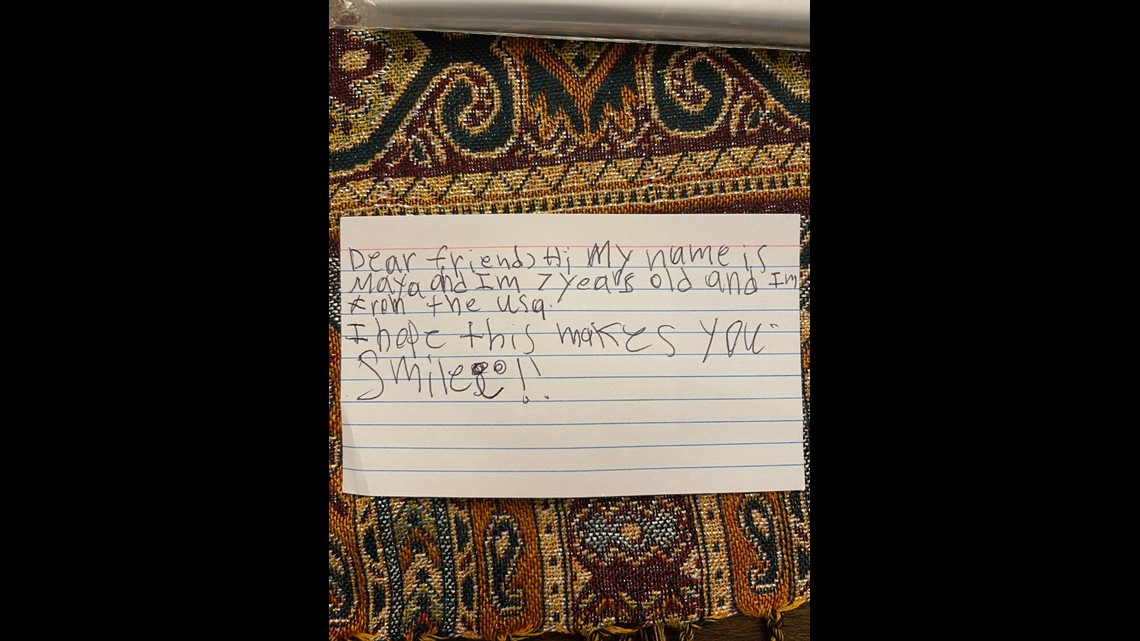 Dear friend, Hi My name is
Maya and Im 7 years old and Im
from the usa.
I hope this makes you
Smile!!